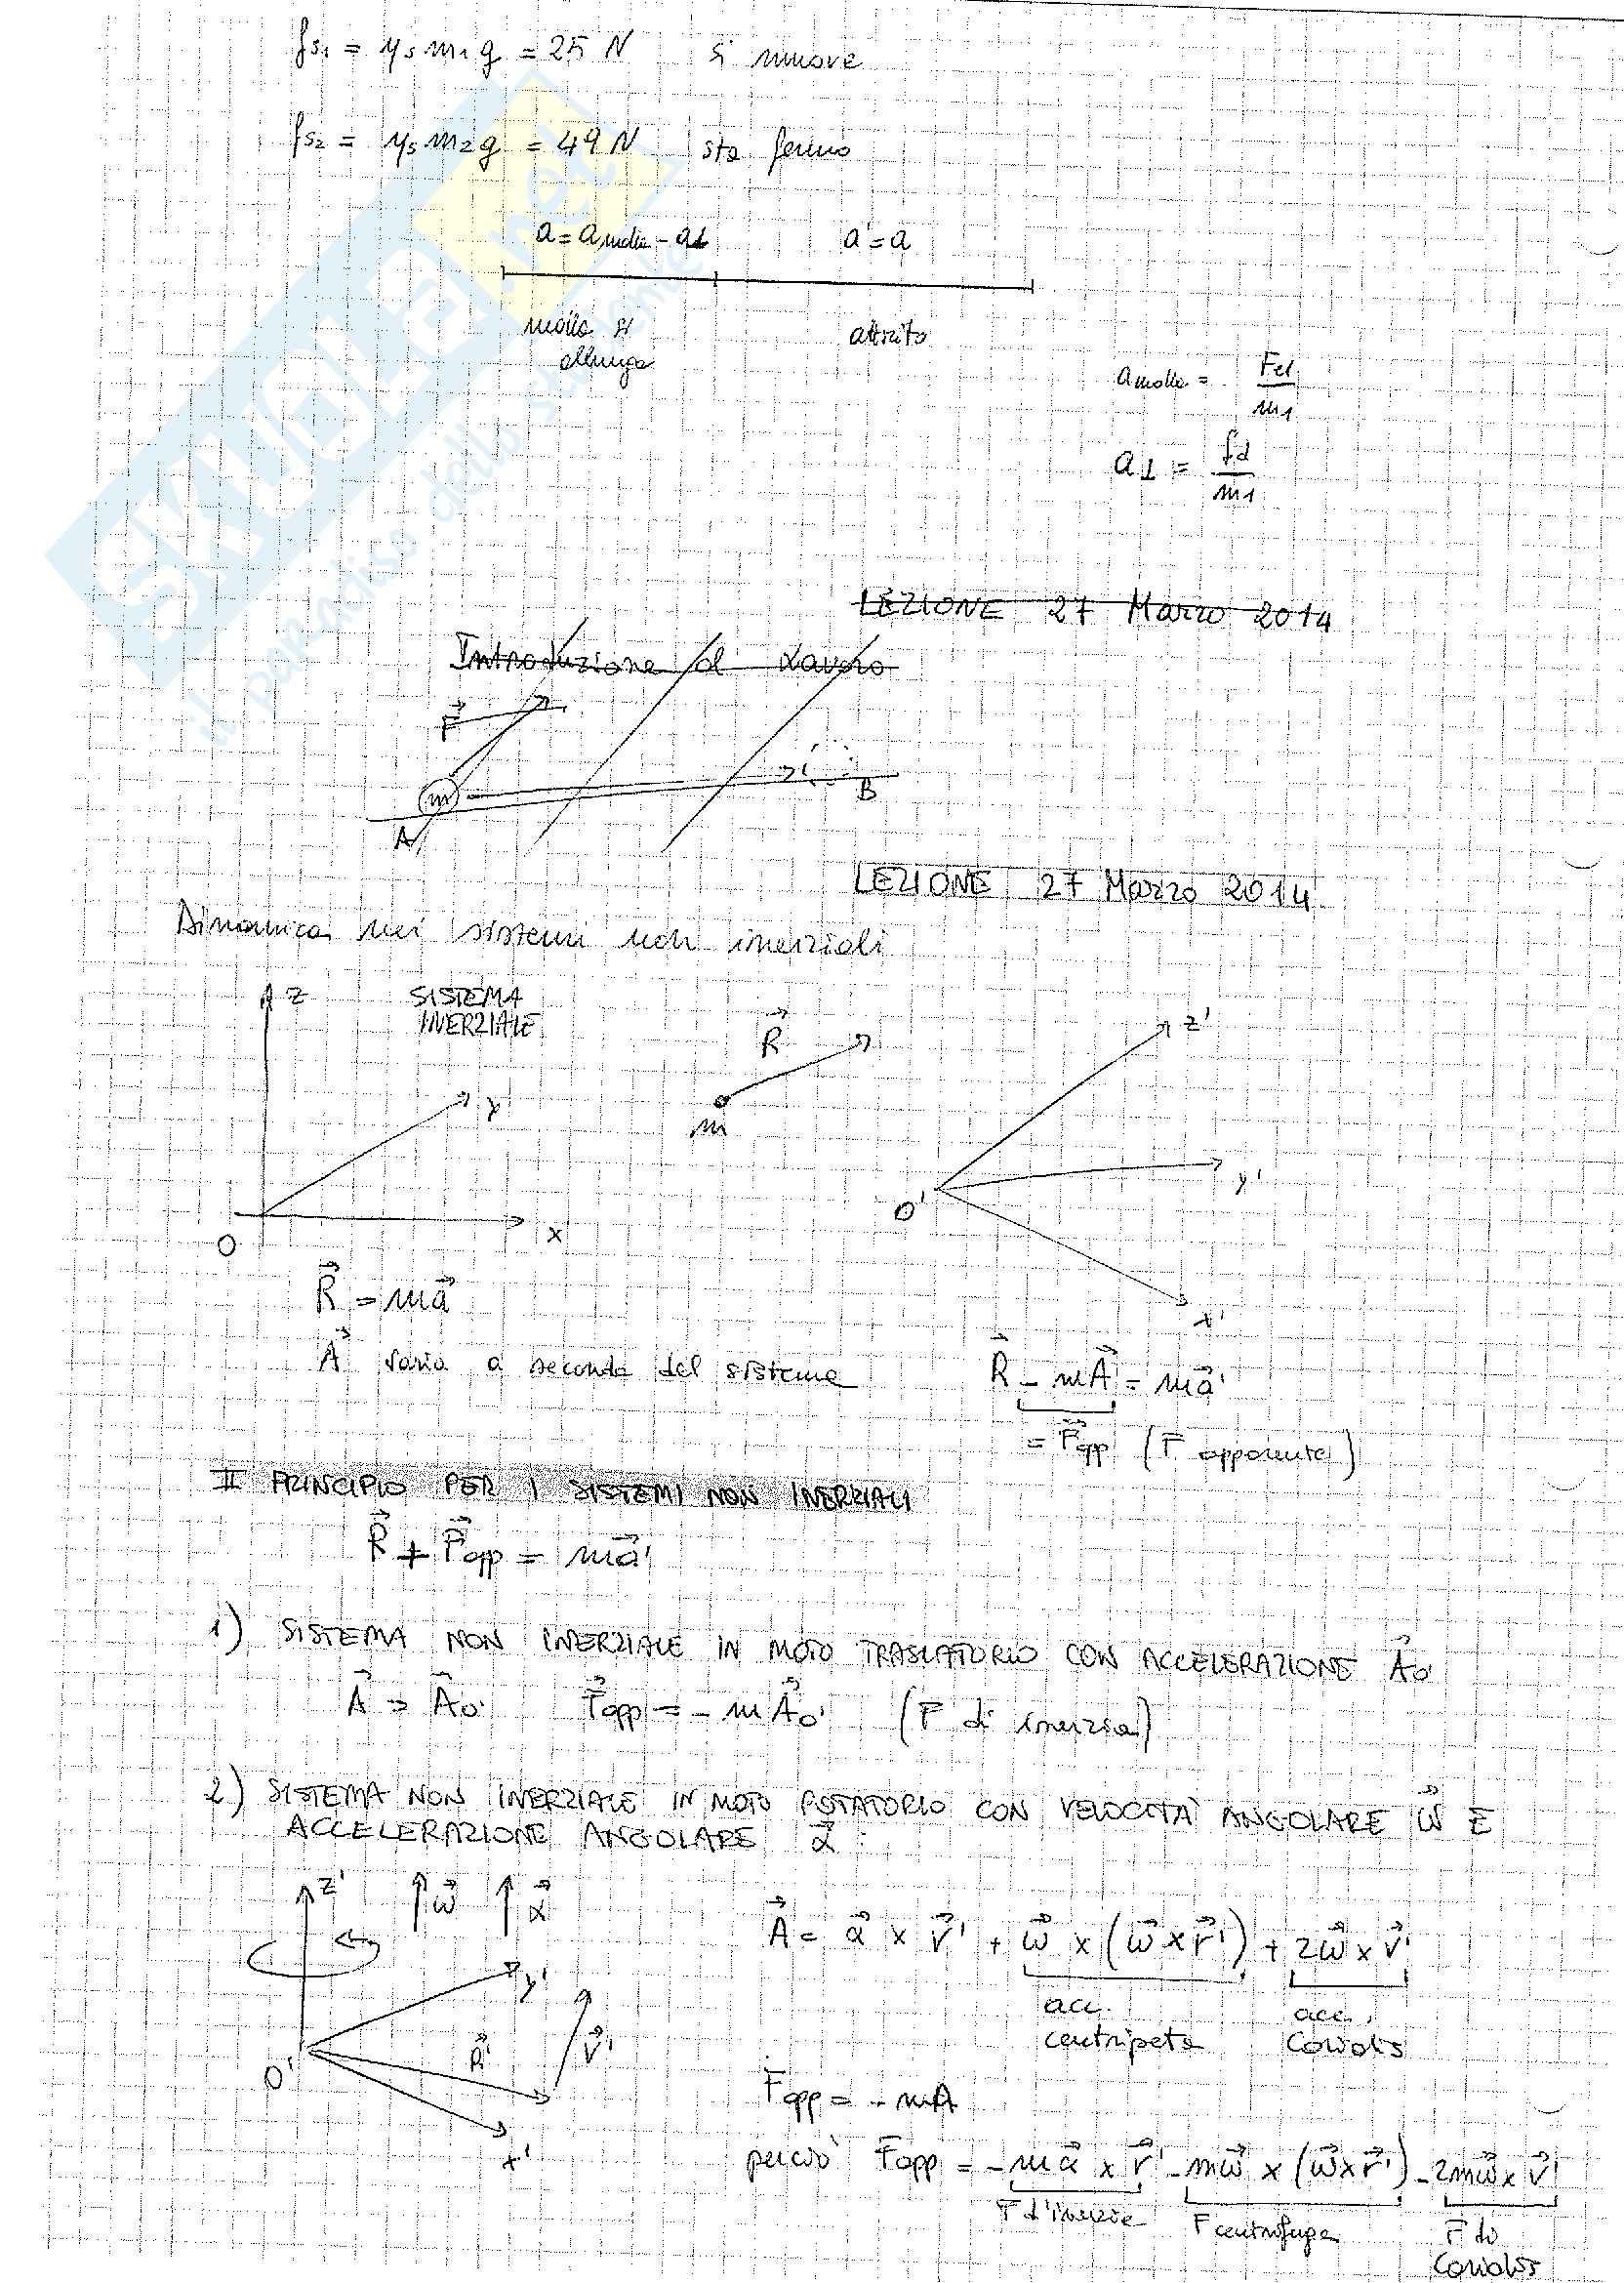 fs₁ = μs m₁ g = 25 N si muove
fs₂ = μs m₂ g = 49 N sta fermo
a = a molla - a⊥ a' = a
molla si
allunga
attrito
a molla = Fel / m₁
a⊥ = fd / m₁
SKUOLA.net
il paradiso dello studente
LEZIONE 27 Marzo 2014
Introduzione al Lavoro
F⃗
m
A
B
LEZIONE 27 Marzo 2014
Dinamica nei sistemi non inerziali
z SISTEMA
INERZIALE
R⃗
z'
y
m
y'
O'
O
x
x'
R⃗ = ma⃗
A⃗ varia a seconda del sistema
R⃗ - mA⃗ = ma⃗'
= F⃗app (F apparente)
II PRINCIPIO PER I SISTEMI NON INERZIALI
R⃗ + F⃗app = ma⃗'
1) SISTEMA NON INERZIALE IN MOTO TRASLATORIO CON ACCELERAZIONE A⃗o'
A⃗ = A⃗o' F⃗app = - mA⃗o' (F di inerzia)
2) SISTEMA NON INERZIALE IN MOTO ROTATORIO CON VELOCITÀ ANGOLARE ω⃗ E
ACCELERAZIONE ANGOLARE α⃗
z' ω⃗ α⃗
A⃗ = α⃗ × r⃗' + ω⃗ × (ω⃗ × r⃗') + 2ω⃗ × v⃗'
acc.
centripeta
acc.
Coriolis
y'
R⃗'
v⃗'
O'
x'
Fapp = - mA
perciò F⃗app = - mα⃗ × r⃗' - mω⃗ × (ω⃗ × r⃗') - 2mω⃗ × v⃗'
F d'inerzia
F centrifuga
F di
Coriolis